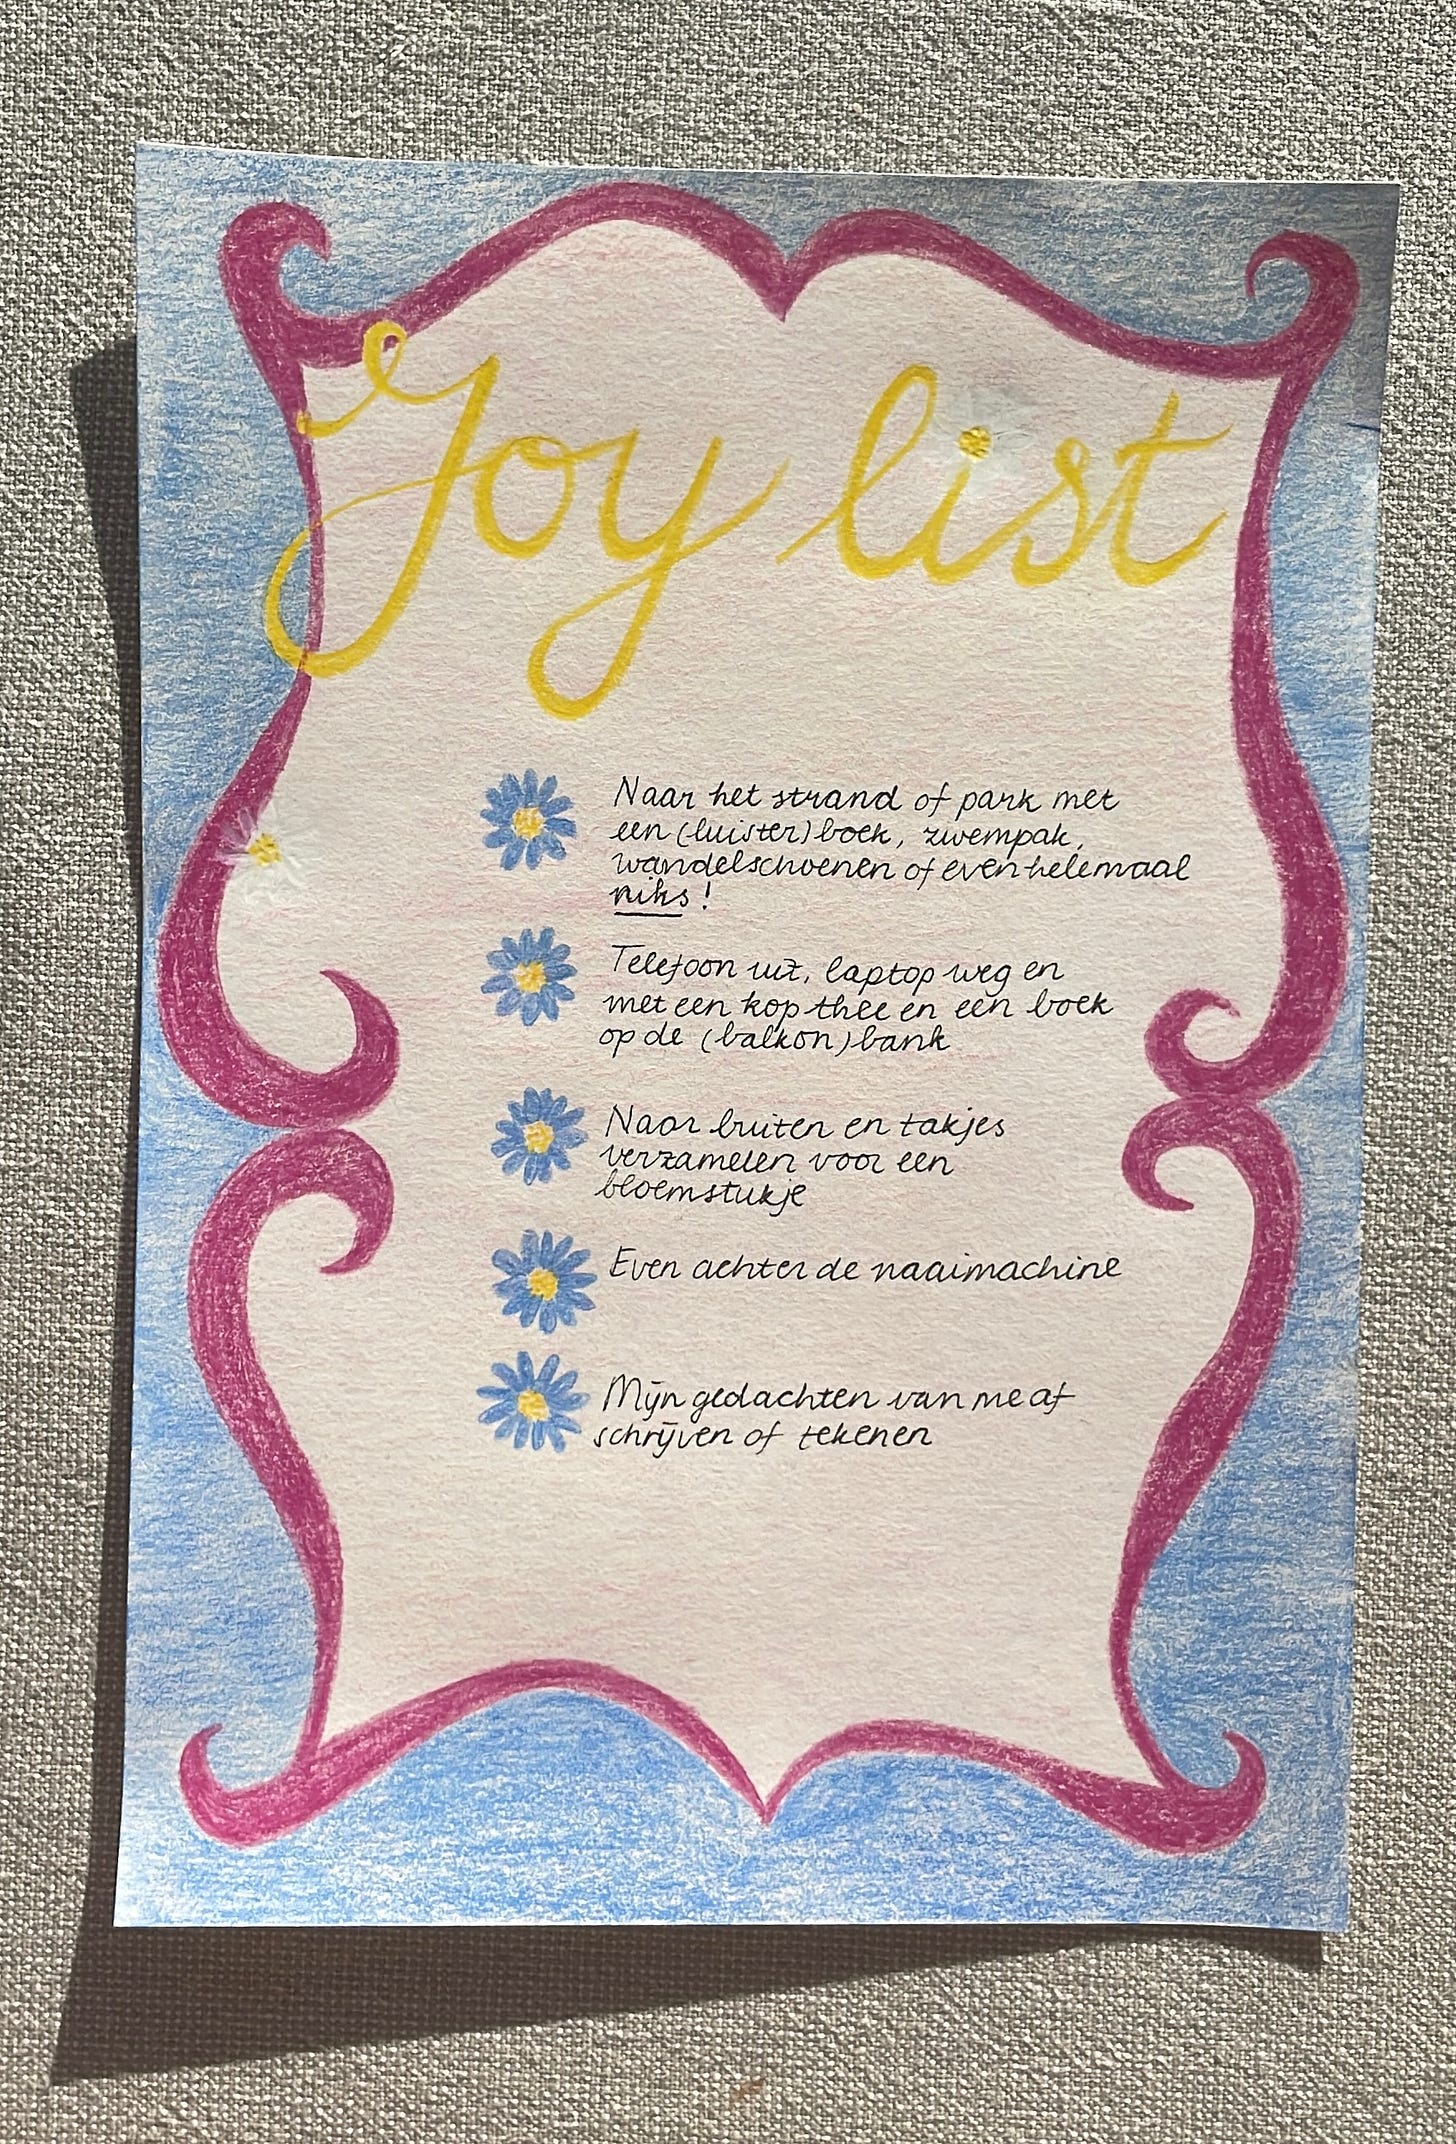 Joy list
Naar het strand of park met
een (luister)boek, zwempak,
wandelschoenen of even helemaal
niks!
Telefoon uit, laptop weg en
met een kop thee en een boek
op de (balkon)bank
Naar buiten en takjes
verzamelen voor een
bloemstukje
Even achter de naaimachine
Mijn gedachten van me af
schrijven of tekenen